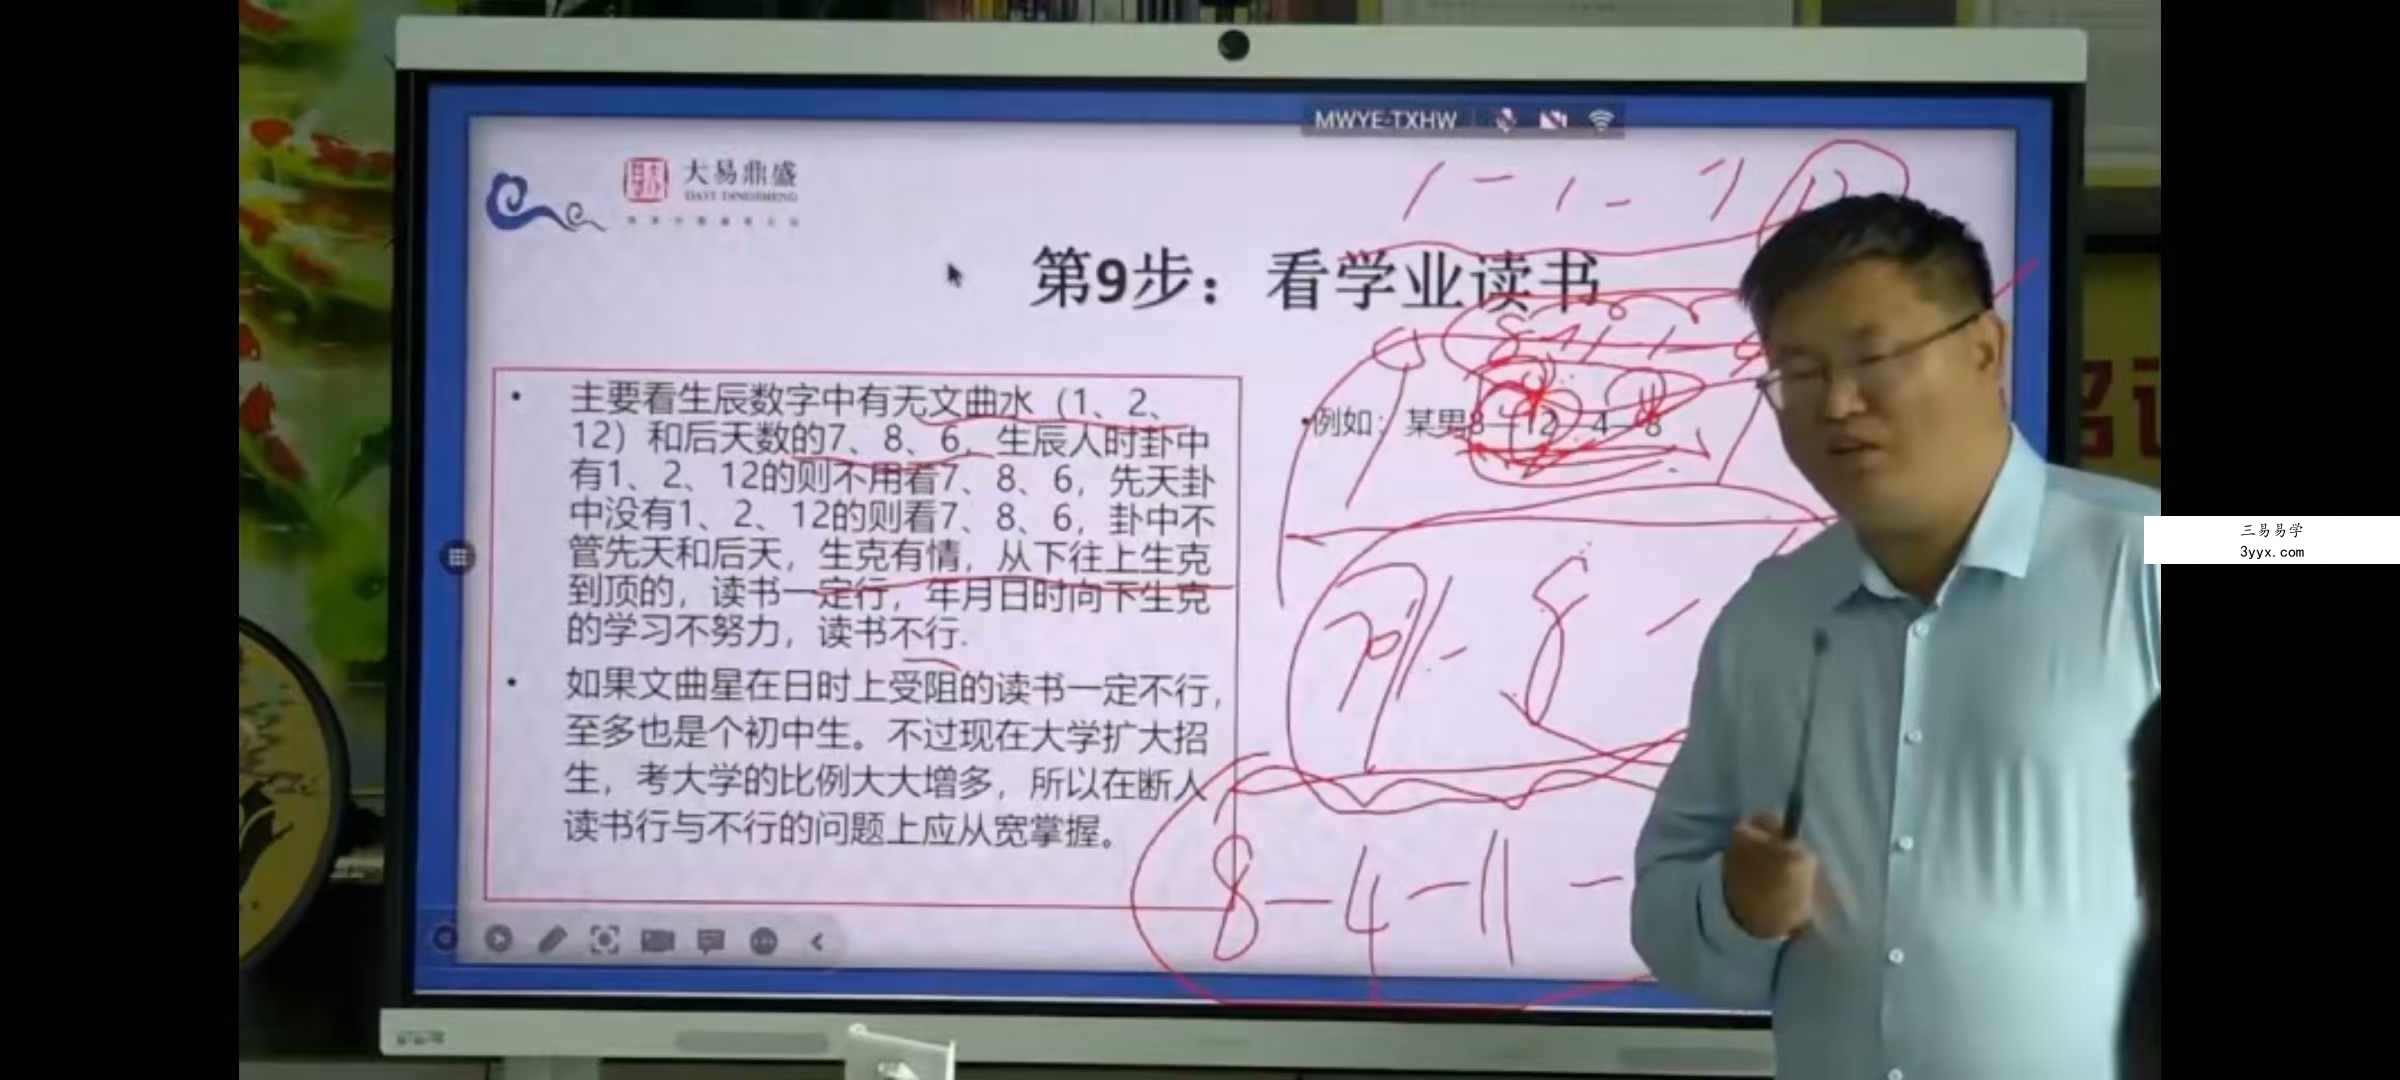 MWYE-TXHW
大易鼎盛
DAYI DINGSHENG
第9步：看学业读书
• 主要看生辰数字中有无文曲水（1、2、
12）和后天数的7、8、6，生辰人时卦中
有1、2、12的则不用看7、8、6，先天卦
中没有1、2、12的则看7、8、6，卦中不
管先天和后天，生克有情，从下往上生克
到顶的，读书一定行，年月日时向下生克
的学习不努力，读书不行.
• 如果文曲星在日时上受阻的读书一定不行，
至多也是个初中生。不过现在大学扩大招
生，考大学的比例大大增多，所以在断人
读书行与不行的问题上应从宽掌握。
•例如：某男8—12—4—8
8-4-11-
三易易学
3yyx.com